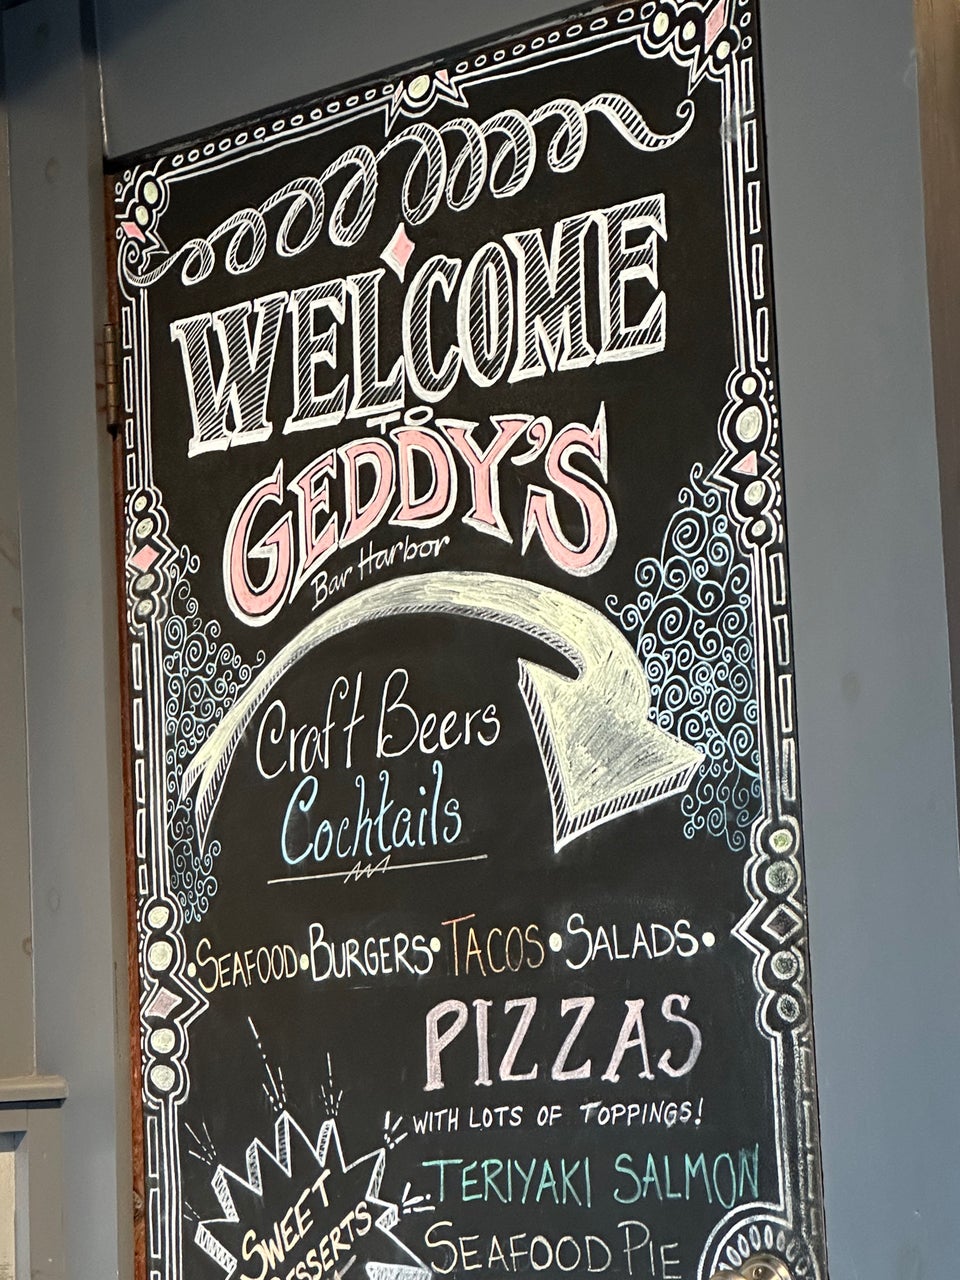 WELCOME
TO
GEDDY'S
Bar Harbor
Craft Beers
Cocktails
•SEAFOOD•BURGERS•TACOS•SALADS•
PIZZAS
WITH LOTS OF TOPPINGS!
TERIYAKI SALMON
SEAFOOD PIE
SWEET
DESSERTS